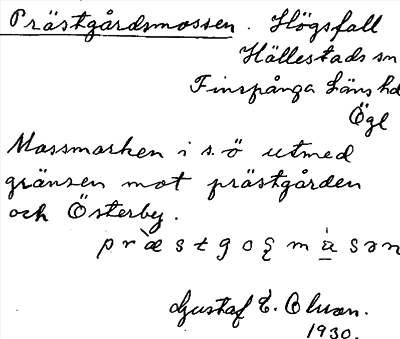 Prästgårdsmossen. Högsfall
Hällestads sn
Finspånga läns hd
Ögl
Mossmarken i s.ö utmed
gränsen mot prästgården
och Österby.
Gustaf E.
1930.